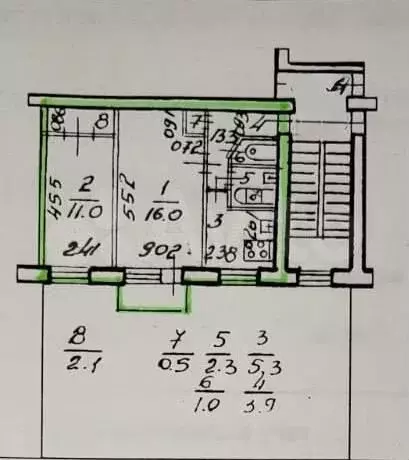 8
7
4
2
11.0
1
16.0
6
5
3
455
552
241
902
238
072
8
2.1
7
0.5
5
2.3
3
5.3
6
1.0
4
3.9